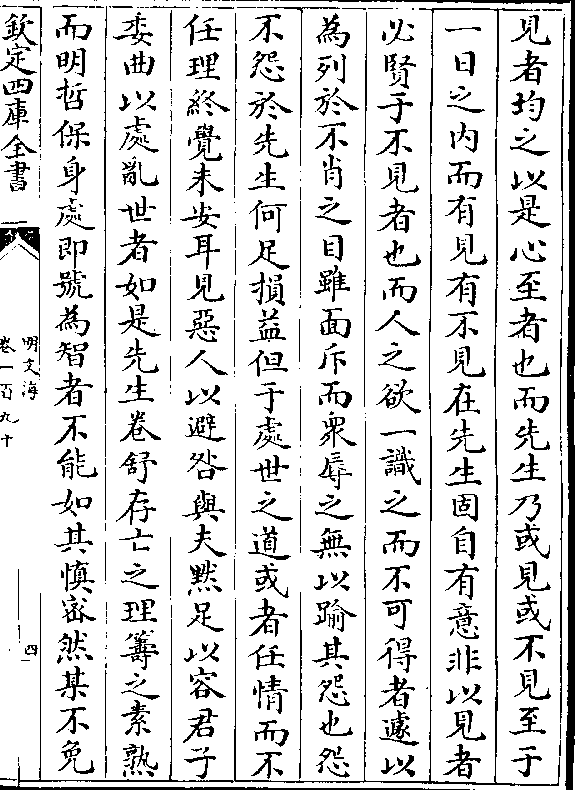 見者均之以是心至者也而先生乃或見或不見至于
一日之内而有見有不見在先生固自有意非以見者
必賢于不見者也而人之欲一識之而不可得者遽以
為列於不肖之目雖面斥而衆辱之無以踰其怨也怨
不怨於先生何足損益但于處世之道或者任情而不
任理終覺未安耳見惡人以避咎與夫黙足以容君子
委曲以處亂世者如是先生卷舒存亡之理籌之素熟
而明哲保身處即號為智者不能如其慎宻然某不免
欽定四庫全書
明文海
卷一百九十
四